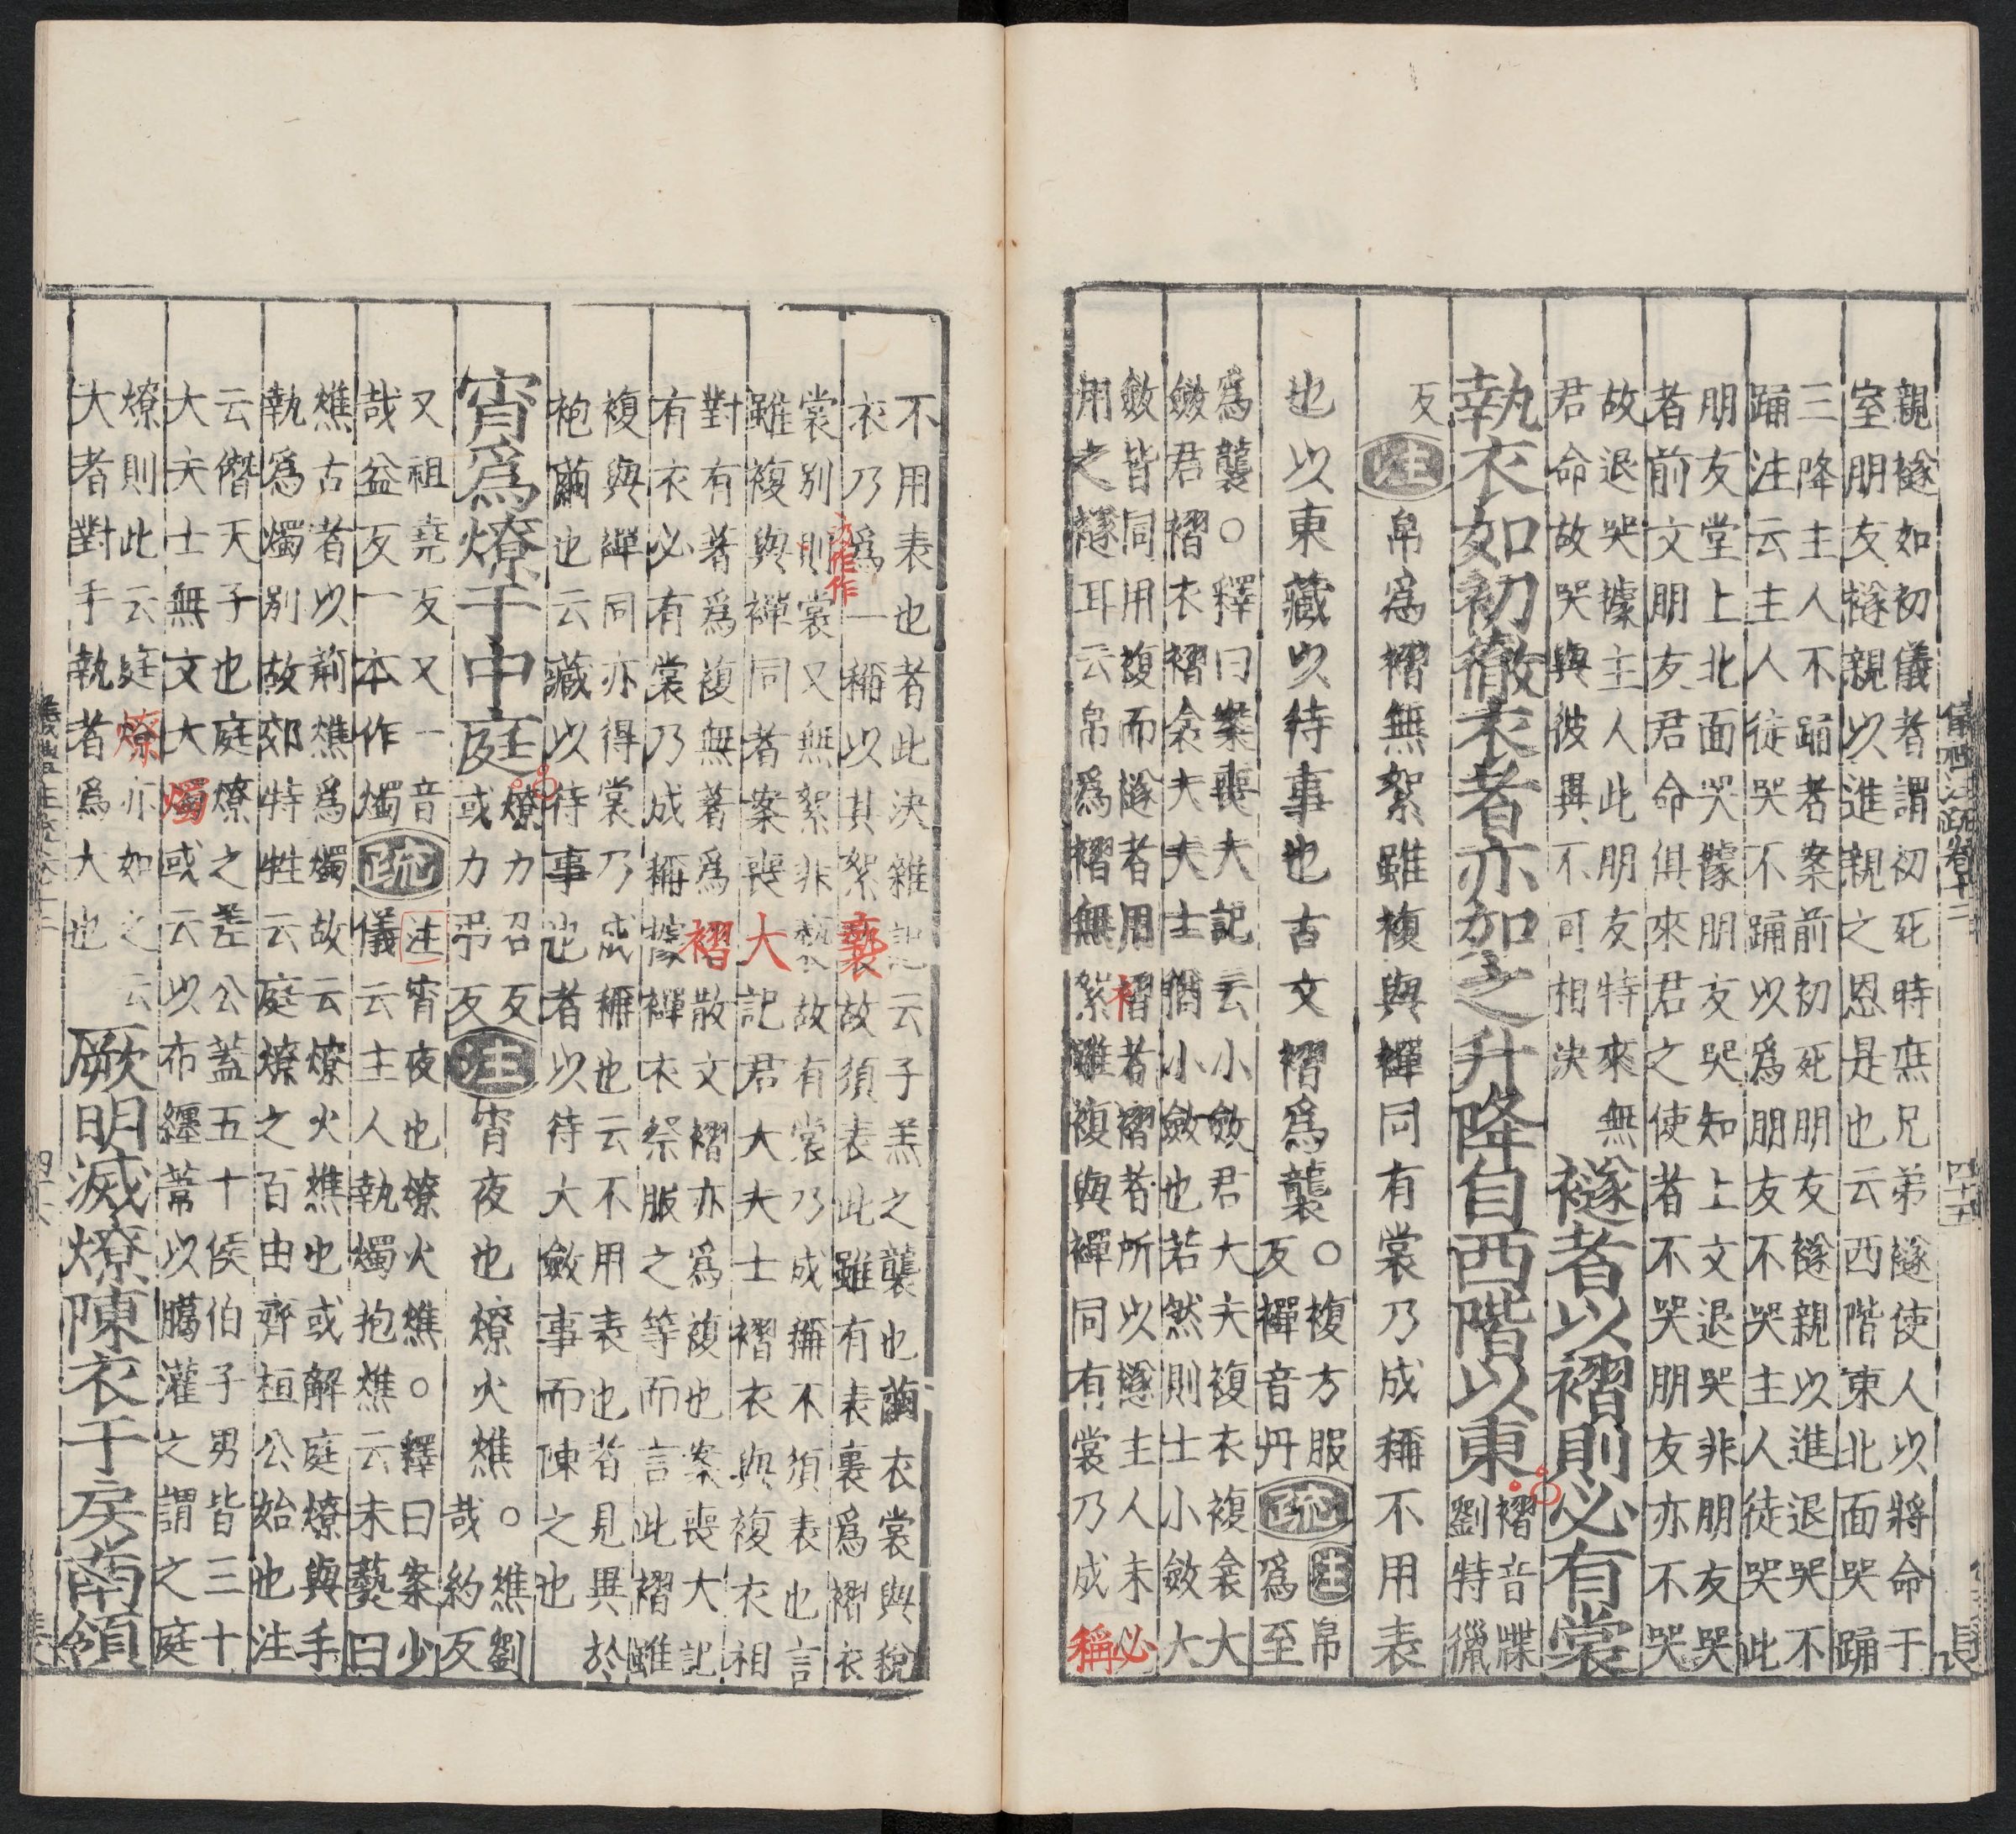 儀禮注疏卷十二
親襚如初儀者謂初死時庶兄弟襚使人以將命于
室朋友襚親以進親之恩是也云西階東北面哭踊
三降主人不踊者案前初死朋友襚親以進退哭不
踊注云主人徒哭不踊以為朋友不哭主人徒哭此
朋友堂上北面哭據朋友哭知上文退哭非朋友哭
者前文朋友君命俱來君之使者不哭朋友亦不哭
故退哭據主人此朋友特來無
君命故哭與彼異不可相決
襚者以褶則必有裳
執衣如初徹衣者亦如之升降自西階以東
褶音牒
劉特獵
反
注帛為褶無絮雖複與襌同有裳乃成稱不用表
也以東藏以待事也古文褶為襲
○複方服
反襌音丹
疏
注帛
為至
為襲○釋曰案喪大記云小斂君大夫複衣複衾大
斂君褶衣褶衾大夫士猶小斂也若然則士小斂大
斂皆同用複而襚者用褶者褶者所以襚主人未必
用之襚耳云帛為褶無絮雖複與襌同有裳乃成稱
不用表也者此決雜記云子羔之襲也繭衣裳與稅
衣乃為一稱以其絮褻故須表此雖有表裏為褶衣
裳別則裳又無絮非褻故有裳乃成稱不須表也言
雖複與襌同者案喪大記君大夫士褶衣與複衣相
對有著為複無著為褶散文褶亦為複也案喪大記
有衣必有裳乃成稱據襌衣祭服之等而言此褶雖
複與襌同亦得裳乃成稱也云不用表也者見異於
袍繭也云藏以待事也者以待大斂事而陳之也
宵為燎于中庭
燎力召反
或力弔反
注宵夜也燎火燋
○燋劉
哉約反
又祖堯反又一音
哉益反一本作燭
疏
注宵夜也燎火燋○釋曰案少
儀云主人執燭抱燋云未爇曰
燋古者以荊燋為燭故云燎火燋也或解庭燎與手
執為燭別故郊特牲云庭燎之百由齊桓公始也注
云僭天子也庭燎之差公蓋五十侯伯子男皆三十
大夫士無文大燭或云以布纏葦以蠟灌之謂之庭
燎則此云庭燎亦如之云
大者對手執者為大也
厥明滅燎陳衣于房南領